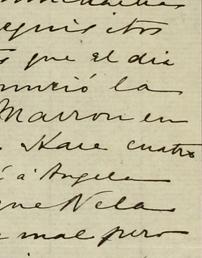 equisitos
s que el dia
unció la
Marron en
. Hace cuatro
é á Angela
que Nela
e mal pero